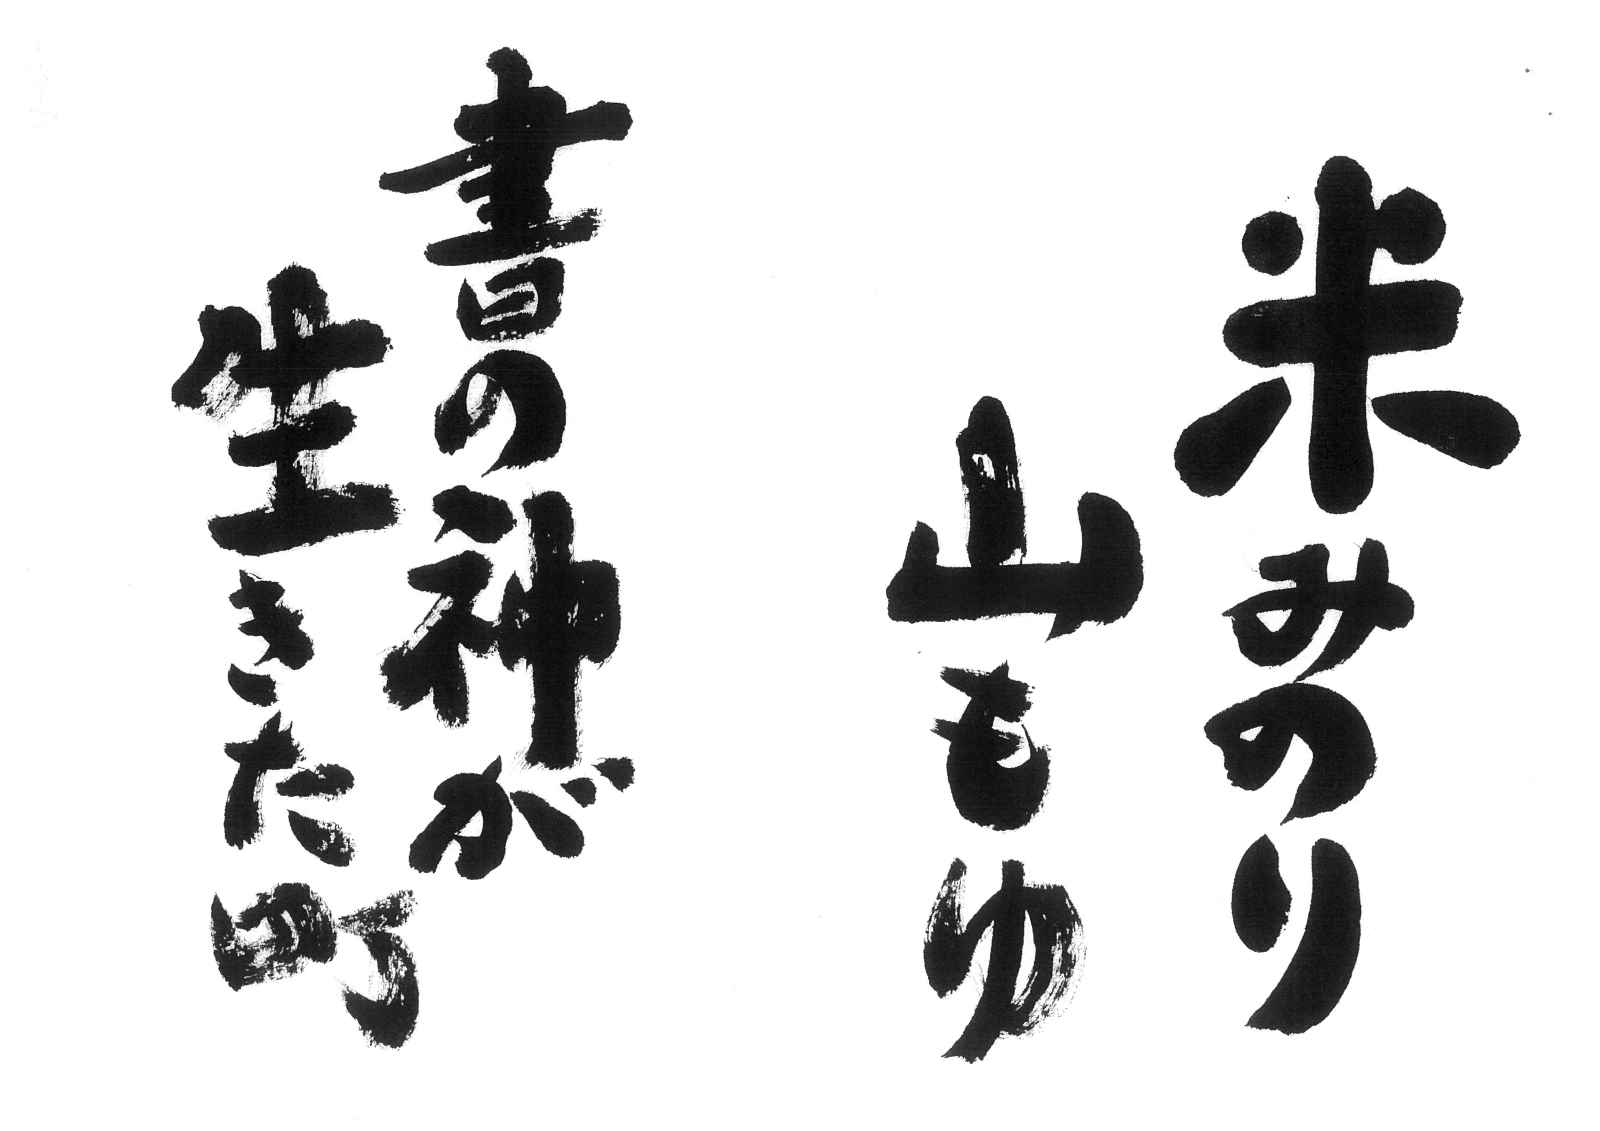 米みのり
山もゆ
書の神が
生きた町